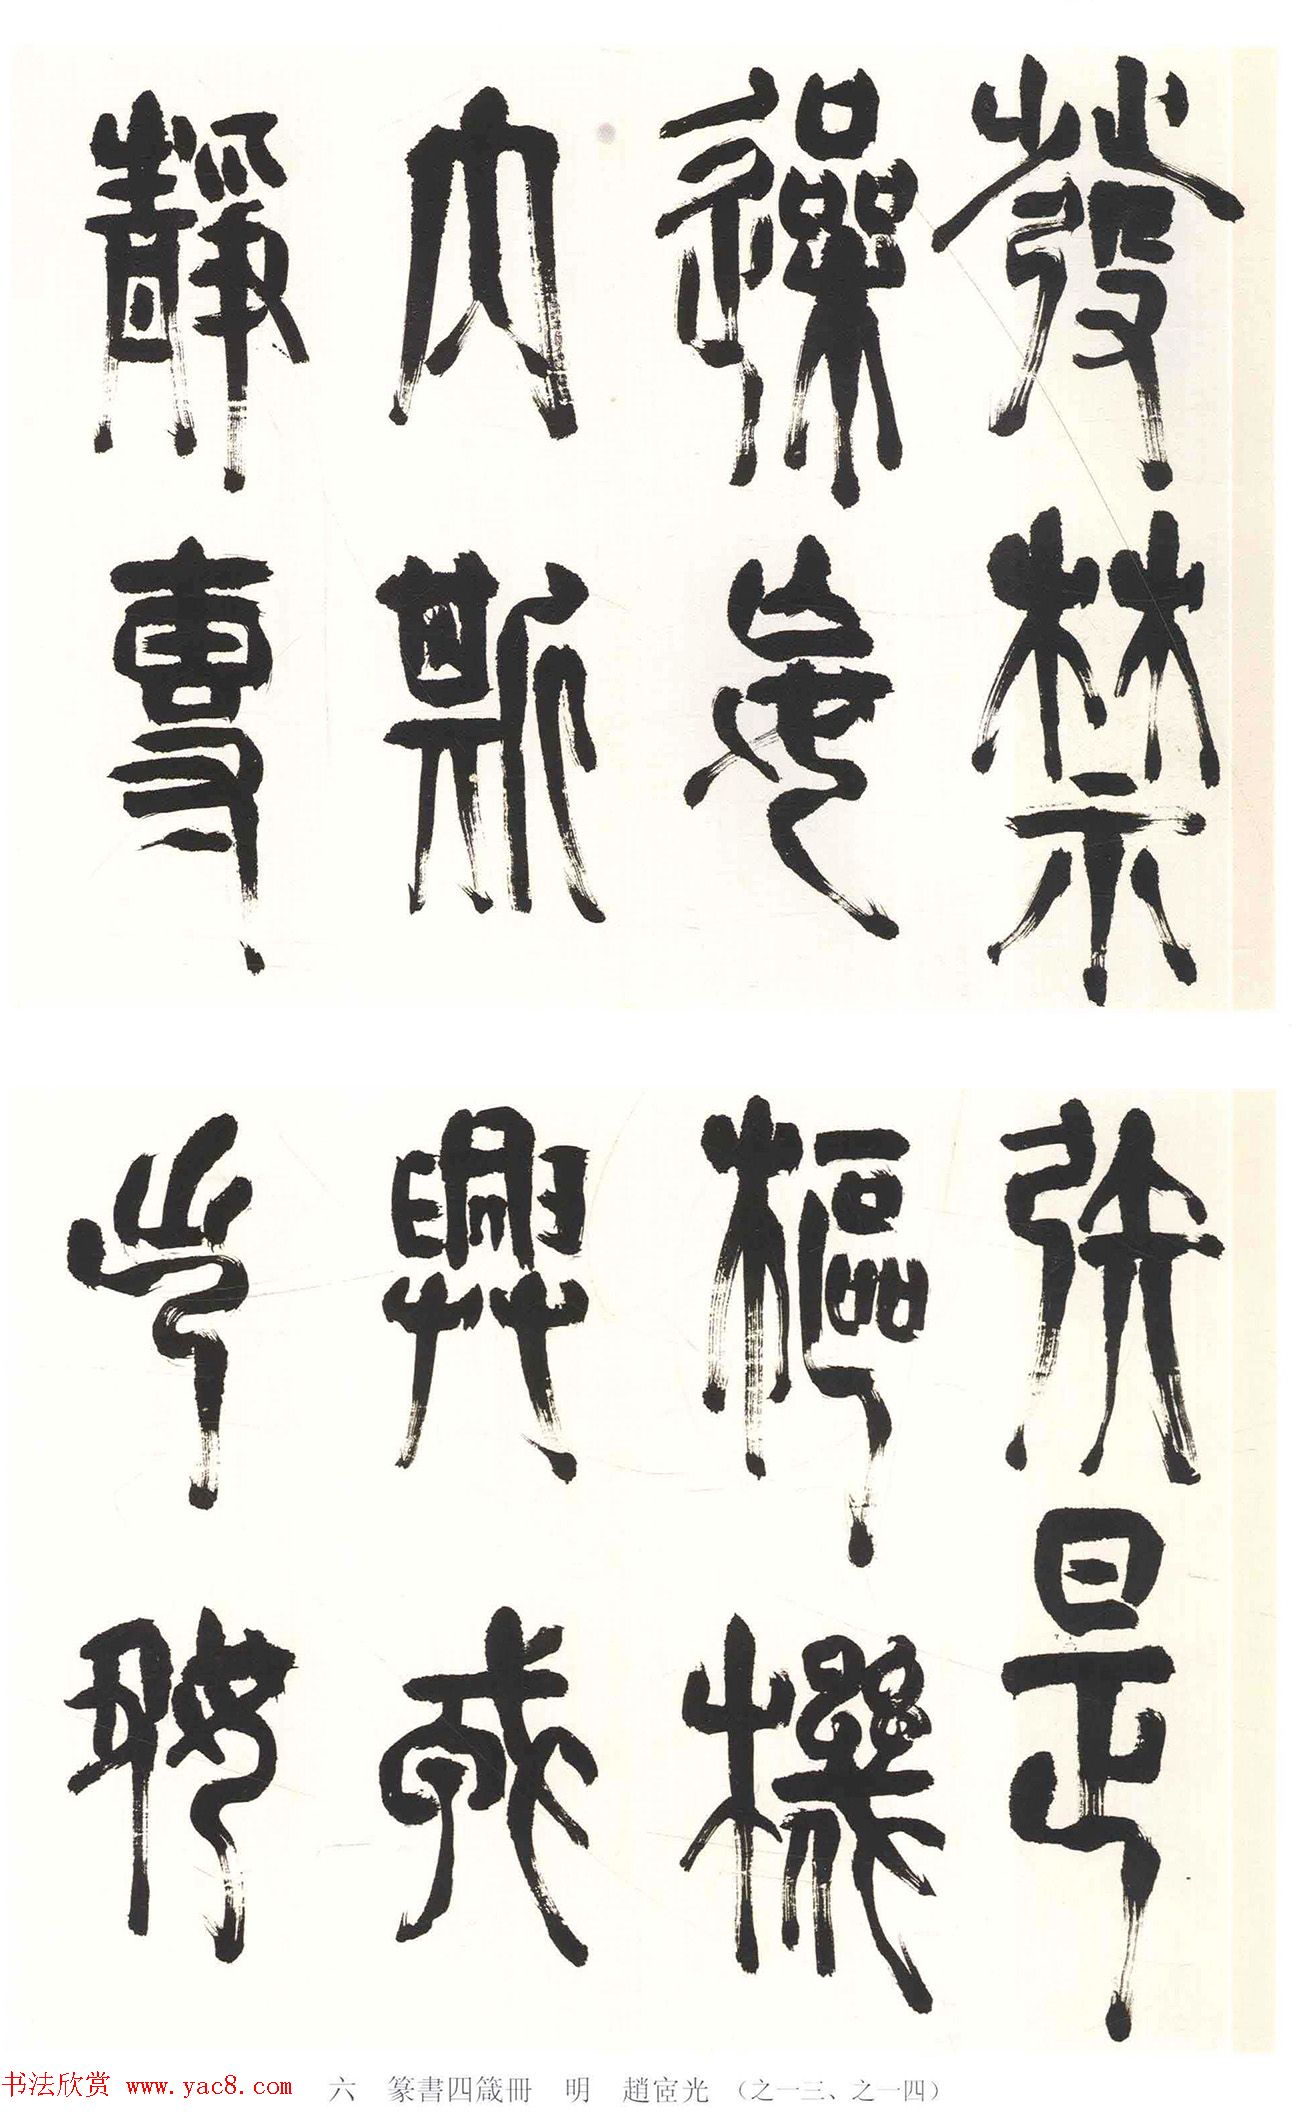 發禁
躁妄
內斯
靜專
矧是
樞機
興戎
出好
六　篆書四箴冊　明　趙宧光（之一三、之一四）
书法欣赏 www.yac8.com